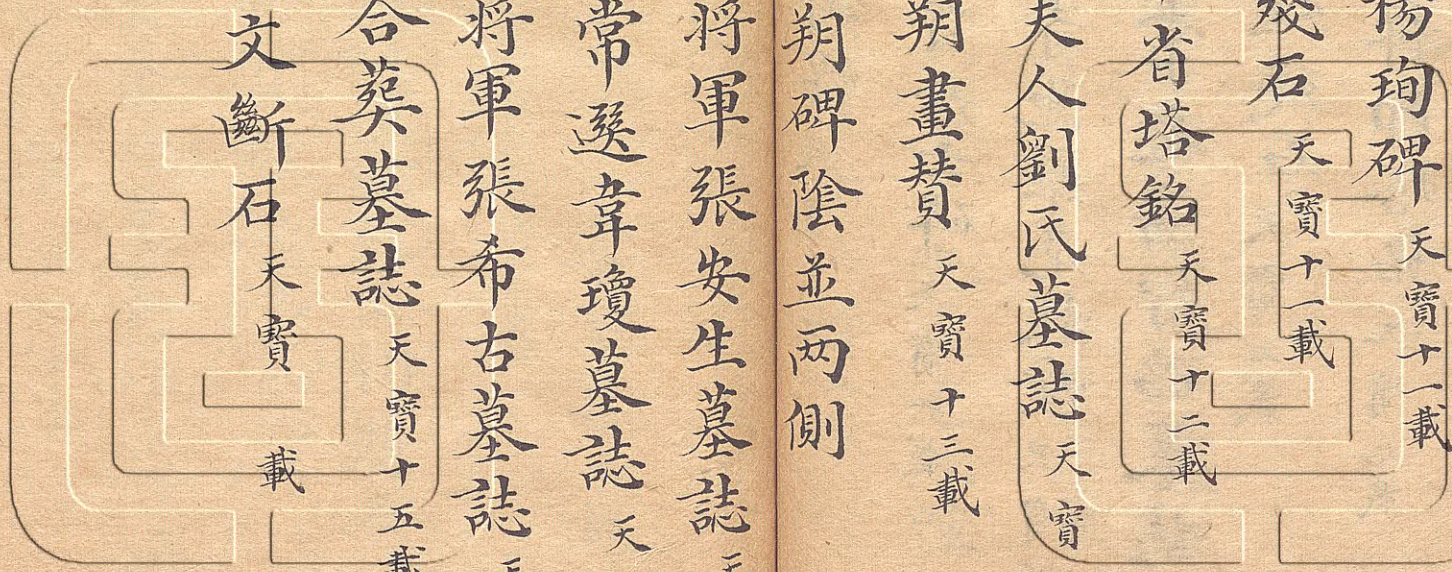 楊珣碑 天寶十一載
殘石 天寶十一載
省塔銘 天寶十二載
夫人劉氏墓誌 天寶
朔畫贊 天寶十三載
朔碑陰並两側
将軍張安生墓誌 天
常選韋瓊墓誌 天
将軍張希古墓誌 天
合葬墓誌 天寶十五載
文斷石 天寶 載